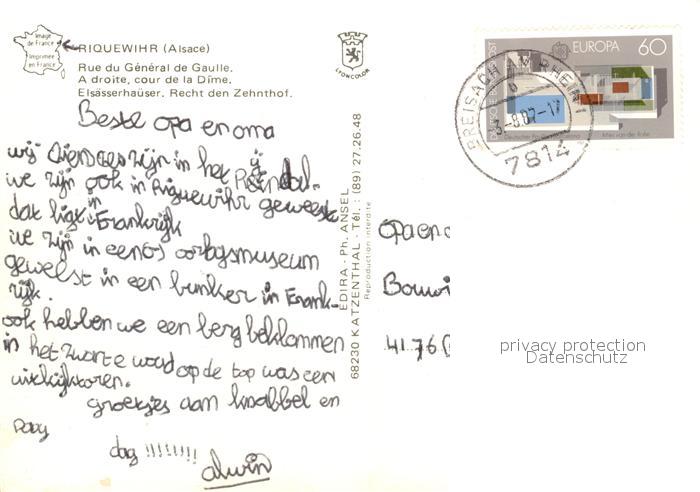 Image
de France
Imprimée
en France
RIQUEWIHR (Alsace)
Rue du Général de Gaulle.
A droite, cour de la Dîme.
Elsässerhäuser. Recht den Zehnthof.
LYONCOLOR
DEUTSCHE BUNDESPOST
EUROPA 60
Deutscher Pavillon Barcelona Mies van der Rohe
BREISACH AM RHEIN
b
-3.-8.87-17
7814
Beste opa en oma
wij zijn in het
we zijn ook in Riquewihr geweest
dat ligt in Frankrijk
we zijn in een oorlogsmuseum
geweest in een bunker in Frank-
rijk.
ook hebben we een berg beklommen
in het zwarte woud op de top was een
uitkijktoren.
groetjes aan knabbel en
dag !!!!!!!!
alwin
EDIRA - Ph. ANSEL
68230 KATZENTHAL - Tél. : (89) 27.26.48
Reproduction interdite
opa en o
4176
privacy protection
Datenschutz